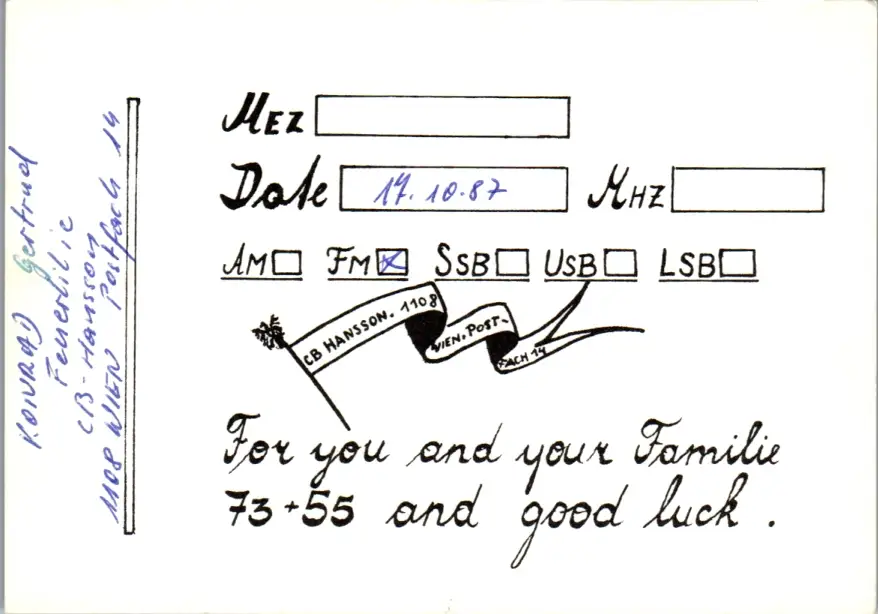 KONRAD Gertrud
Feuerlilie
CB-Hansson
1108 WIEN Postfach 14
MEZ
Date 17.10.87 MHZ
AM FM SSB USB LSB
CB HANSSON. 1108
WIEN. POST-
FACH 14
For you and your Familie
73+55 and good luck.